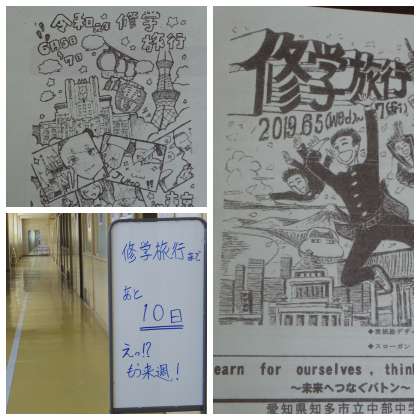 令和元年 修学
旅行
6月5日
~7日
東京
修学旅行まで
あと
10日
えっ!?
もう来週!
修学旅行
2019.6.5(Wed)~
7(Fri)
◆表紙絵デザ
◆スローガン
earn for ourselves, thin
~未来へつなぐバトン~
愛知県知多市立中部中学